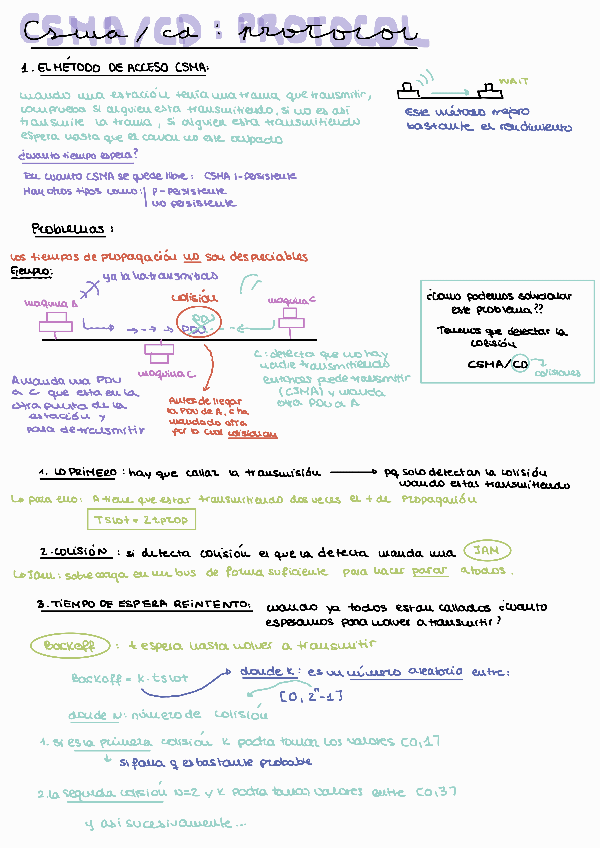 Csma/cd : PROTOCOL
1. EL MÉTODO DE ACCESO CSMA:
cuando una estación tenía una trama que transmitir,
comprueba si alguien esta transmitiendo, si no es así
transmite la trama, si alguien esta transmitiendo
espera hasta que el canal no este ocupado
WAIT
Este método mejoro
bastante el rendimiento
¿cuanto tiempo espera?
En cuanto CSMA se quede libre: CSMA 1-Persistente
Hay otros tipos como: P-Persistente
no persistente
Problemas:
Los tiempos de propagación no son despreciables
Ejemplo:
ya la ha transmitido
maquina A
colisión
maquina C
PDU
PDU
maquina C
A manda una PDU
a C que esta en la
otra punta de la
estación y
para de transmitir
Antes de llegar
la PDU de A, C ha
mandado otra
por lo cual colisionan
C: detecta que no hay
nadie transmitiendo
entonces puede transmitir
(CSMA) y manda
otra PDU a A
¿como podemos solucionar
este problema??
Tenemos que detectar la
colisión
CSMA/CD
colisiones
1. LO PRIMERO: hay que callar la transmisión → pq solo detectan la colisión
cuando estas transmitiendo
↳ para ello: A tiene que estar transmitiendo dos veces el t de Propagación
Tslot = 2tprop
2. COLISIÓN: si detecta colisión el que la detecta manda una JAM
↳ JAM: sobrecarga en un bus de forma suficiente para hacer parar a todos.
3. TIEMPO DE ESPERA REINTENTO: cuando ya todos estan callados ¿cuanto
esperamos para volver a transmitir?
Backoff : t espera hasta volver a transmitir
Backoff = k·tslot
donde k: es un número aleatorio entre:
[0, 2ⁿ-1]
donde N: número de colisión
1. si es la primera colisión k podra tomar los valores [0,1]
↳ si falla q es bastante probable
2. la segunda colisión N=2 y k podra tomar valores entre [0,3]
y asi sucesivamente...